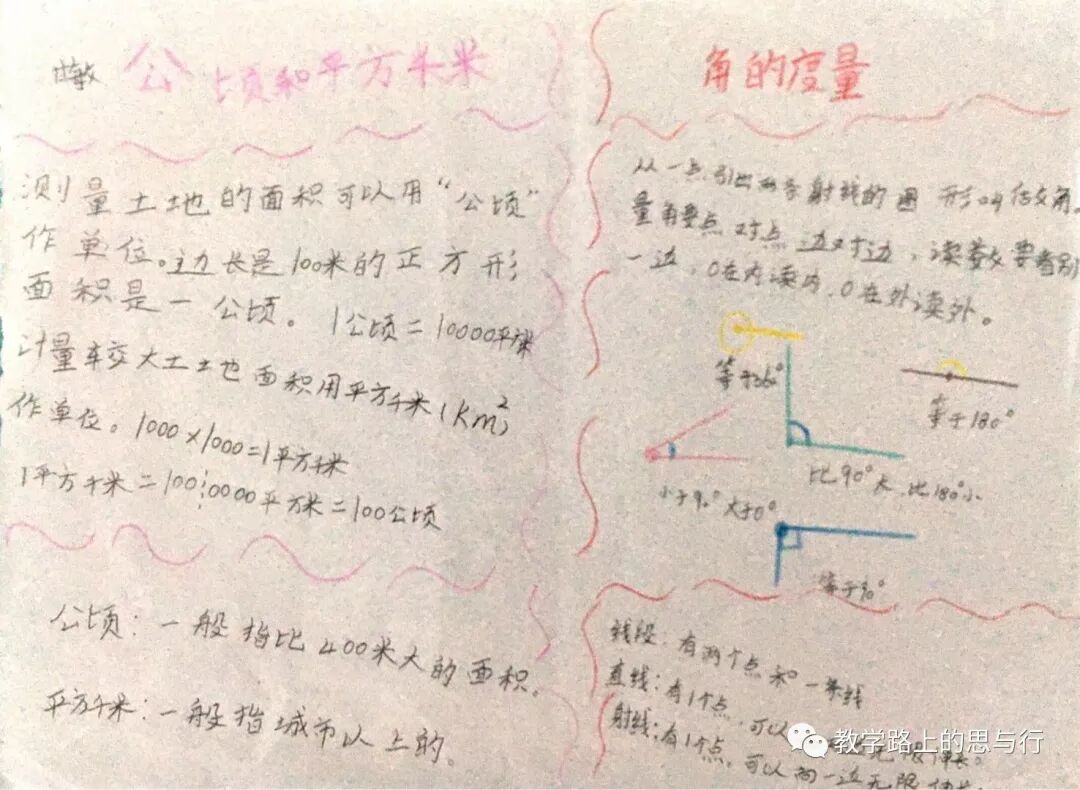 公顷和平方千米
测量土地的面积可以用“公顷”
作单位。边长是100米的正方形
面积是一公顷。1公顷=10000平方米
计量较大土地面积用平方千米(km²)
作单位。1000×1000=1平方千米
1平方千米=1000000平方米=100公顷
公顷:一般指比400米大的面积。
平方千米:一般指城市以上的。
角的度量
从一点引出两条射线的图形叫作角。
量角要点对点,边对边,读数要看别
一边,0在内读内,0在外读外。
等于360°
等于180°
比90°大,比180°小
小于90°大于0°
等于90°
线段:有两个点和一条线
直线:有1个点,可以无限伸长。
射线:有1个点,可以向一边无限伸长
教学路上的思与行